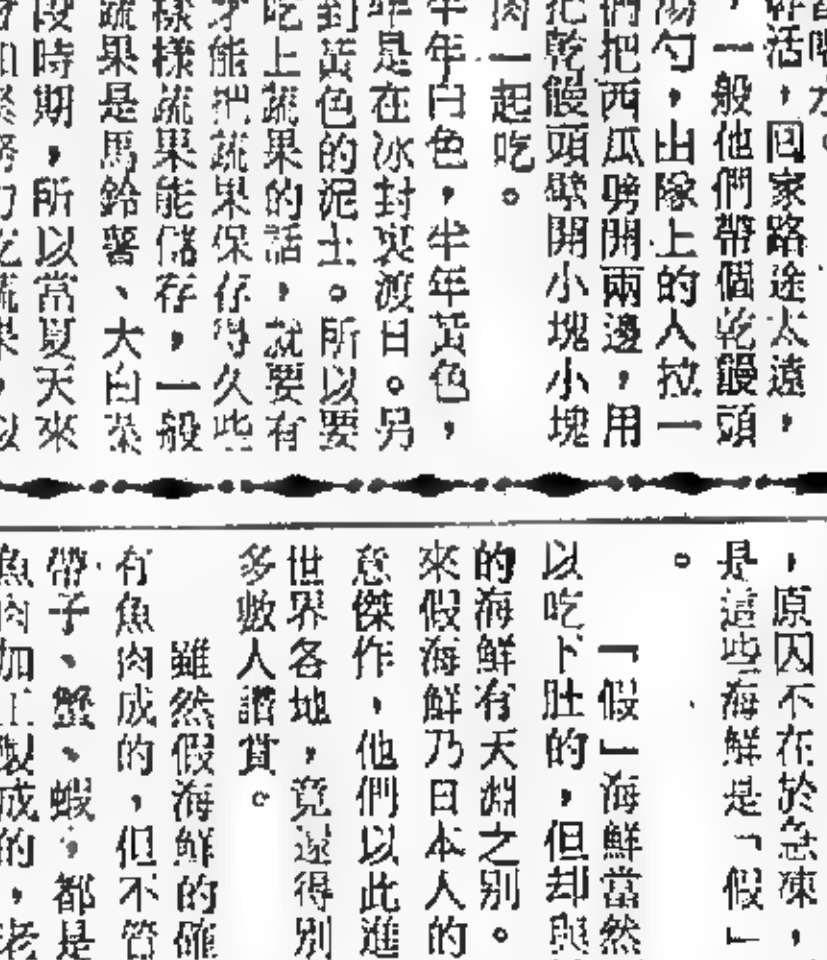 幹活，回家路途太遠，
，一般他們帶個乾饅頭
湯勺，由隊上的人拉一
們把西瓜嗙開兩邊，用
把乾饅頭擘開小塊小塊
肉一起吃。
半年白色，半年黃色，
年是在冰封裏渡日。另
到黃色的泥土。所以要
吃上蔬果的話，就要有
才能把蔬果保存得久些
樣樣蔬果能儲存，一般
蔬果是馬鈴薯、大白菜
段時期，所以當夏天來
，原因不在於急凍，
是這些海鮮是「假」
。
「假」海鮮當然
以吃下肚的，但卻與
的海鮮有天淵之別。
來假海鮮乃日本人的
意傑作，他們以此進
世界各地，竟還得別
多數人讚賞。
雖然假海鮮的確
有魚肉成的，但不管
帶子、蟹、蝦，都是
魚肉加工製成的，老